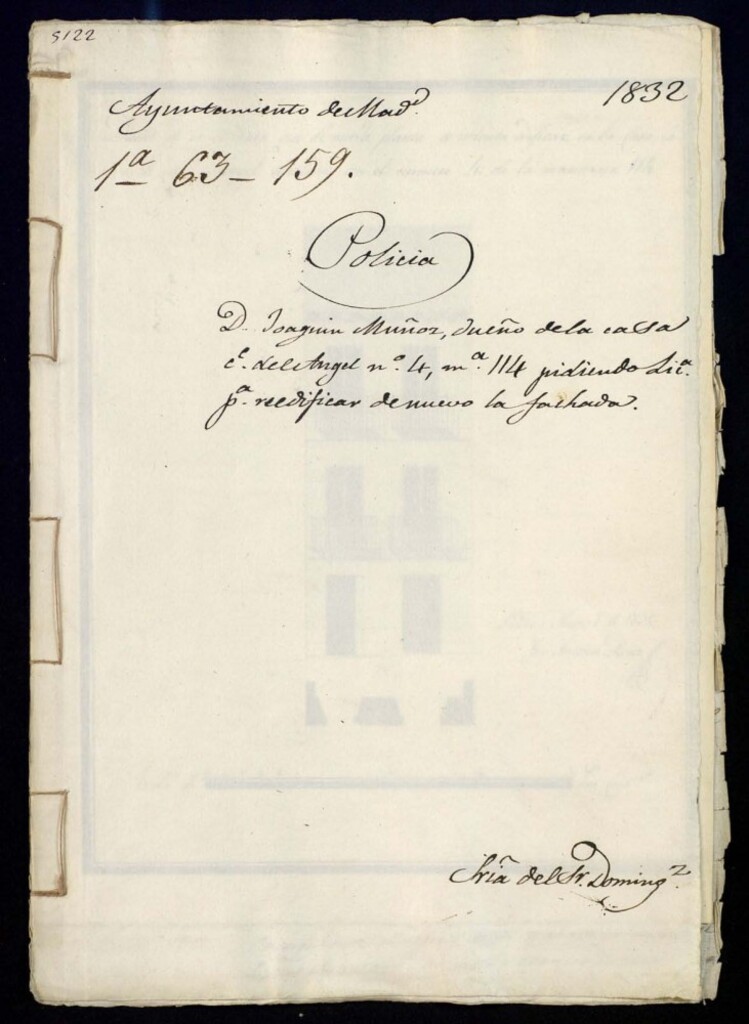 5122
Ayuntamiento de Mad.d
1832
1.a 63 – 159.
Policia
D. Joaquin Muñoz, dueño de la casa
c.e del Angel n.o 4, m.a 114 pidiendo Lic.a
p.a reedificar de nuevo la fachada.
Sría del Sr. Doming.z